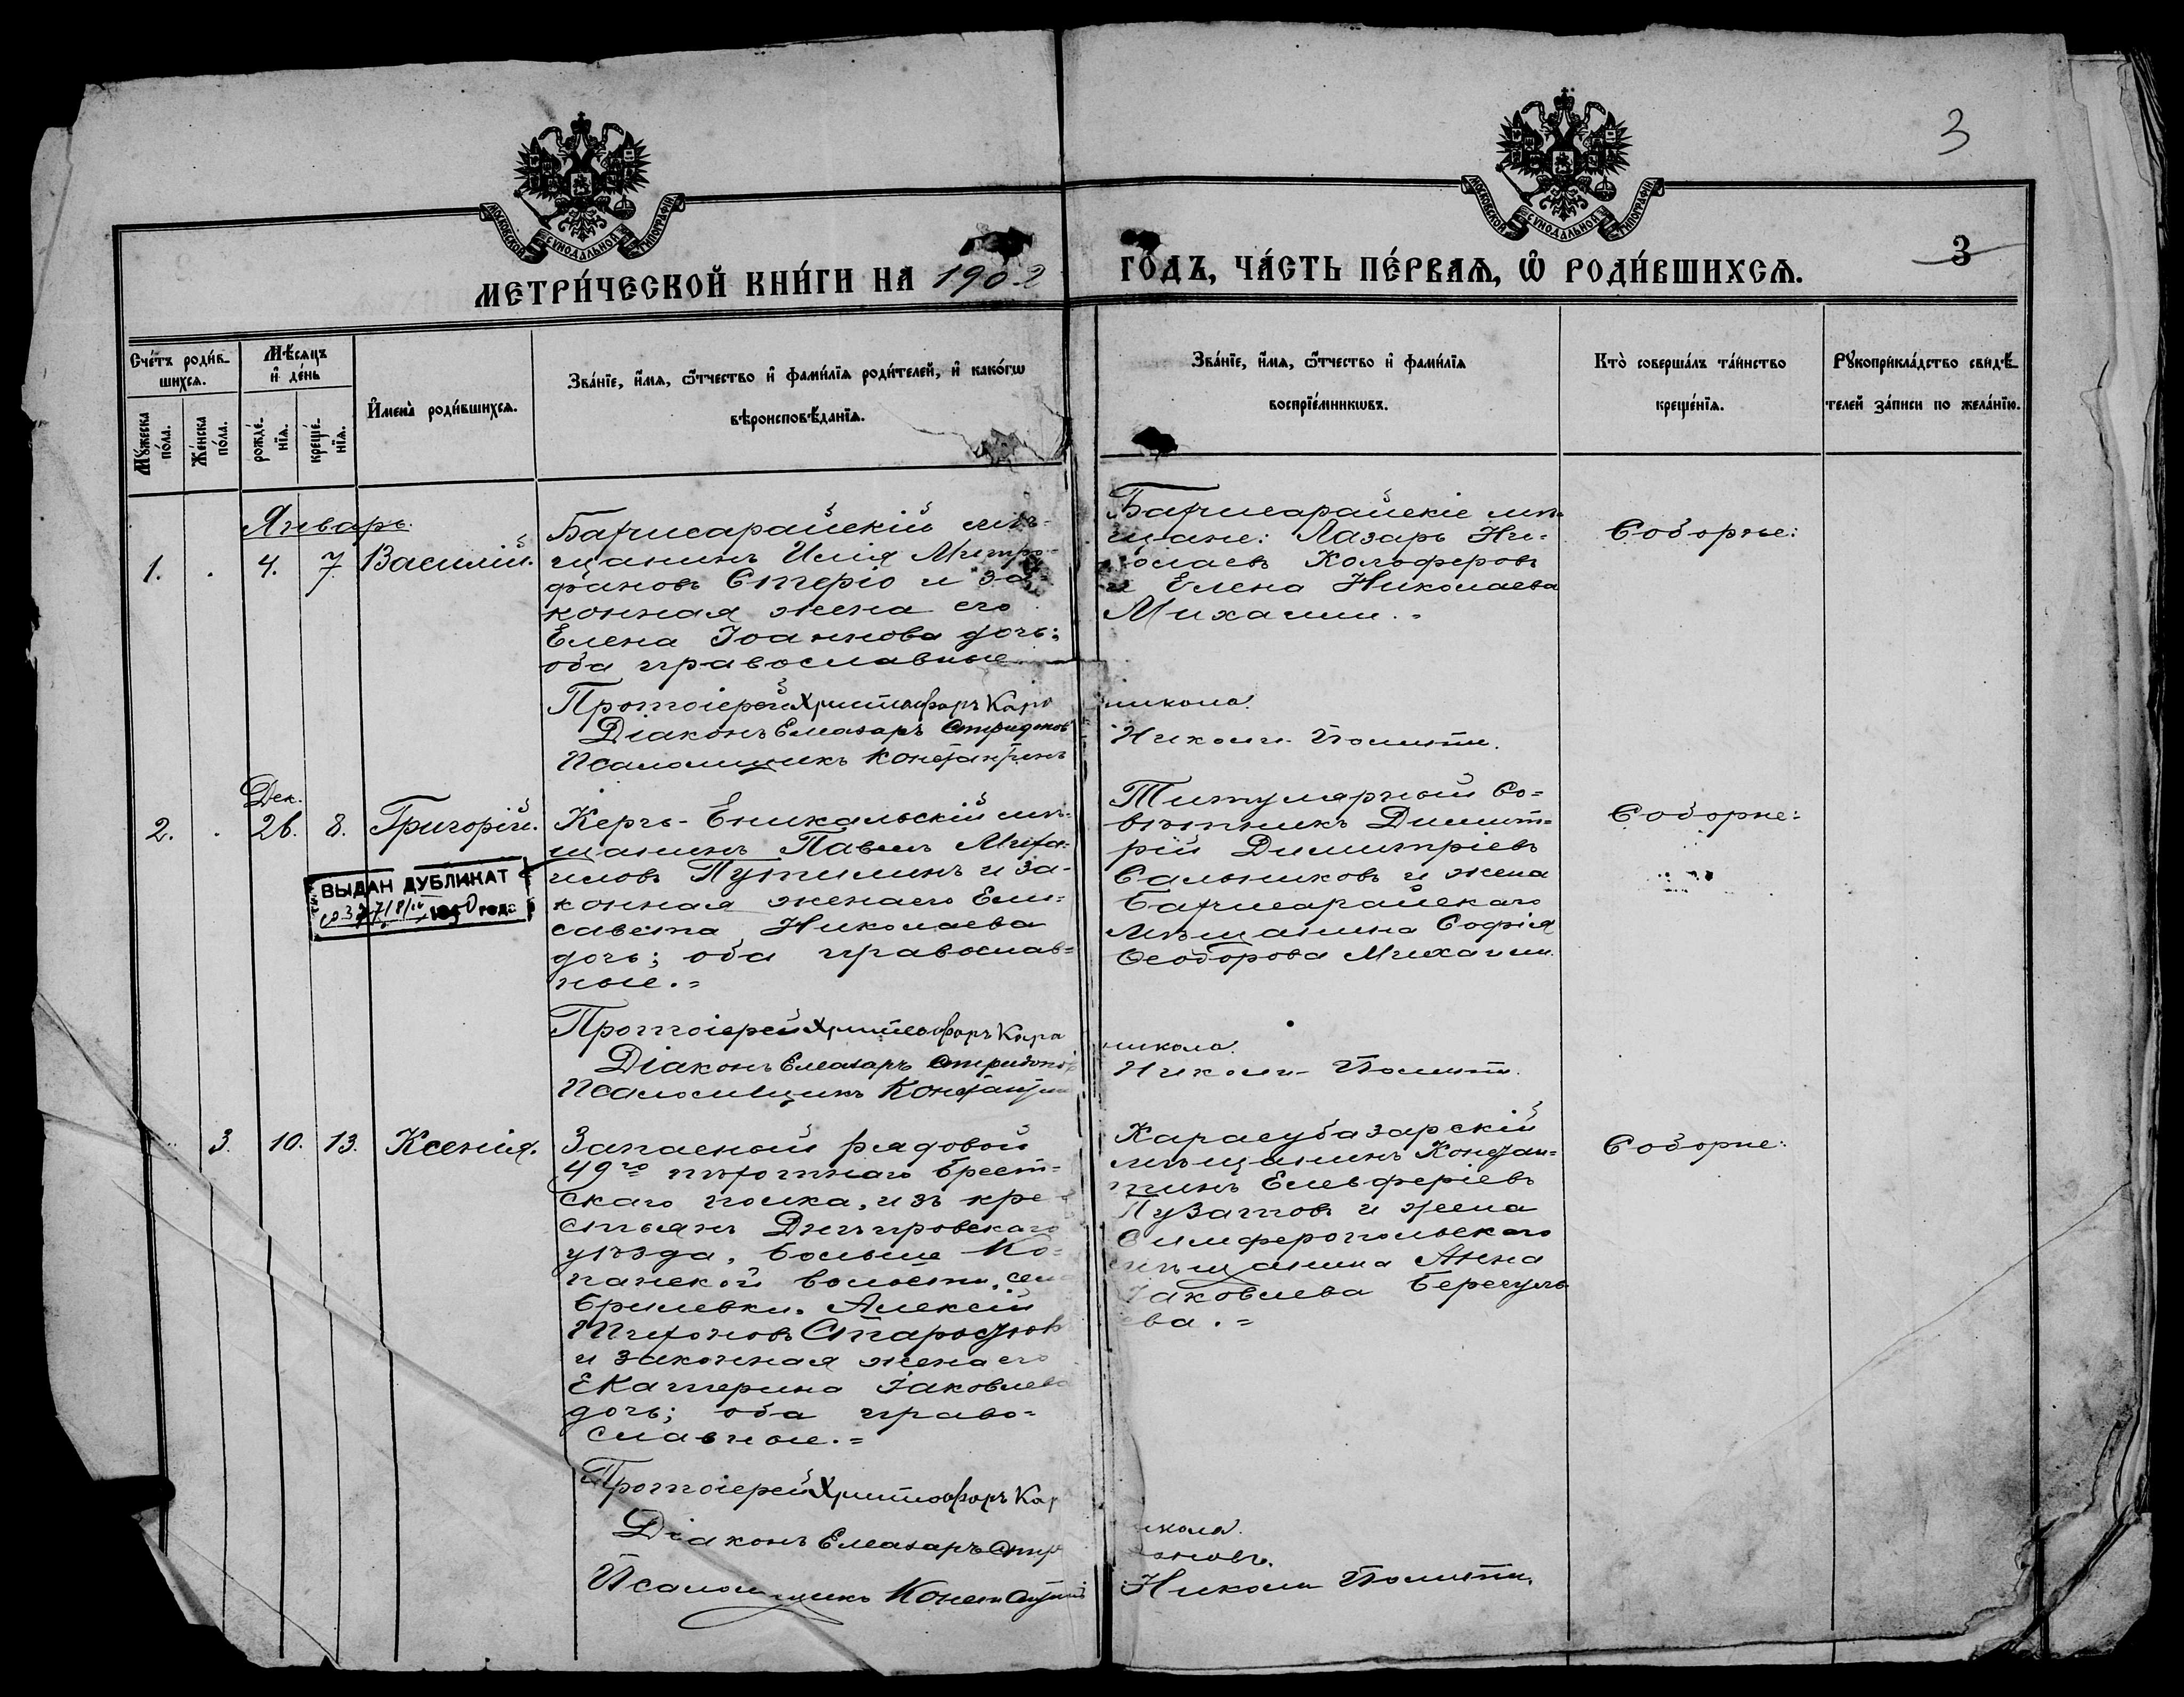 3
МОСКОВСКОЙ СУНОДАЛЬНОЙ ТИПОГРАФІИ
МОСКОВСКОЙ СУНОДАЛЬНОЙ ТИПОГРАФІИ
МЕТРИ́ЧЕСКОЙ КНИ́ГИ НА 1902 ГО́ДЪ, ЧА́СТЬ ПЕ́РВАѦ, Ѽ РОДИ́ВШИХСѦ.
3
Сче́тъ роди́в-
шихсѧ.
Мꙋ́жеска
по́ла.
Же́нска
по́ла.
Мѣ́сѧцъ
и҆ де́нь
рожде́-
нїѧ.
креще́-
нїѧ.
И҆мена̀ роди́вшихсѧ.
Зва́нїе, и҆́мѧ, ѻ҆́тчество и҆ фами́лїѧ роди́телей, и҆ како́гѡ
вѣроисповѣ́данїѧ.
Зва́нїе, и҆́мѧ, ѻ҆́тчество и҆ фами́лїѧ
воспрїе́мникѡвъ.
Кто̀ соверша́лъ та́инство
креще́нїѧ.
Рꙋкоприкла́дство свидѣ́-
телей за́писи по жела́нїю.
Январь.
1. . 4. 7. Василій.
Бахчисарайскій мѣ-
щанинъ Илія Митро-
фановъ Стеріо и за-
конная жена его
Елена Іоаннова дочь;
оба православные
Бахчисарайскіе мѣ-
щане: Лазарь Ни-
колаевъ Колоферовъ
и Елена Николаева
Михаили.
Соборне:
Протоіерей Христофоръ Кара
никола.
Діаконъ Елеазаръ Спиридонов
Псаломщикъ Константинъ
Николи- Полити.
Дек.
2. . 26. 8. Григорій.
ВЫДАН ДУБЛИКАТ
года
Керчь-Еникальскій мѣ-
щанинъ Павелъ Михаи-
иловъ Путилинъ и за-
конная жена его Ели-
савета Николаева
дочь; оба православ-
ные.
Титулярный Со-
вѣтникъ Димит-
рій Димитріевъ
Сальниковъ и жена
Бахчисарайскаго
мѣщанина Софія
Ѳеодорова Михаили.
Соборне:
Протоіерей Христофоръ Кара
никола.
Діаконъ Елеазаръ Спиридонов
Псаломщикъ Константин
Николи- Полити.
3. 10. 13. Ксенія.
Запасный рядовой
49го пѣхотнаго Брест-
скаго полка, изъ кре-
стьянъ Днѣпровскаго
уѣзда, Больше Ко-
панской волости, села
Брилевки, Алексій
Тихоновъ
и законная жена его
Екатерина Іаковлева
дочь; оба право-
славные.
Карасубазарскій
мѣщанинъ Констан-
тинъ Елевферіевъ
Пузатовъ и жена
Симферопольскаго
мѣщанина Анна
Іаковлева
ева.
Соборне:
Протоіерей Христофоръ Кар
икола.
Діаконъ Елеазаръ Спир
оновъ.
Псаломщикъ Константинъ
Николи Полити.